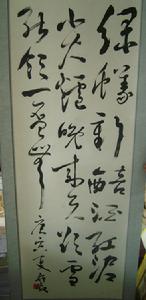 綠蟻新醅酒紅泥
小火爐晚來天欲雪
能飲一杯無